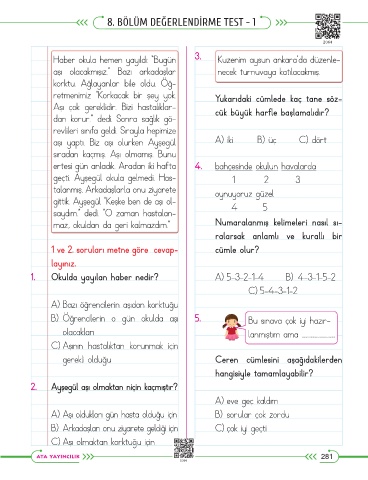 8. BÖLÜM DEĞERLENDİRME TEST - 1
Haber okula hemen yayıldı: "Bugün
aşı olacakmışız." Bazı arkadaşlar
korktu. Ağlayanlar bile oldu. Öğ-
retmenimiz "Korkacak bir şey yok.
Aşı çok gereklidir. Bizi hastalıklar-
dan korur." dedi. Sonra sağlık gö-
revlileri sınıfa geldi. Sırayla hepimize
aşı yaptı. Biz aşı olurken Ayşegül
sıradan kaçmış. Aşı olmamış. Bunu
ertesi gün anladık. Aradan iki hafta
geçti. Ayşegül okula gelmedi. Has-
talanmış. Arkadaşlarla onu ziyarete
gittik. Ayşegül "Keşke ben de aşı ol-
saydım." dedi. "O zaman hastalan-
maz, okuldan da geri kalmazdım."
1 ve 2. soruları metne göre cevap-
layınız.
1. Okulda yayılan haber nedir?
A) Bazı öğrencilerin aşıdan korktuğu
B) Öğrencilerin o gün okulda aşı
olacakları
C) Aşının hastalıktan korunmak için
gerekli olduğu
2. Ayşegül aşı olmaktan niçin kaçmıştır?
A) Aşı oldukları gün hasta olduğu için
B) Arkadaşları onu ziyarete geldiği için
C) Aşı olmaktan korktuğu için
3. Kuzenim aysun ankara'da düzenle-
necek turnuvaya katılacakmış.
Yukarıdaki cümlede kaç tane söz-
cük büyük harfle başlamalıdır?
A) iki B) üç C) dört
4. bahçesinde okulun havalarda
1 2 3
oynuyoruz güzel
4 5
Numaralanmış kelimeleri nasıl sı-
ralarsak anlamlı ve kurallı bir
cümle olur?
A) 5-3-2-1-4 B) 4-3-1-5-2
C) 5-4-3-1-2
5. Bu sınava çok iyi hazır-
lanmıştım ama ..................
Ceren cümlesini aşağıdakilerden
hangisiyle tamamlayabilir?
A) eve geç kaldım
B) sorular çok zordu
C) çok iyi geçti
ATA YAYINCILIK
281